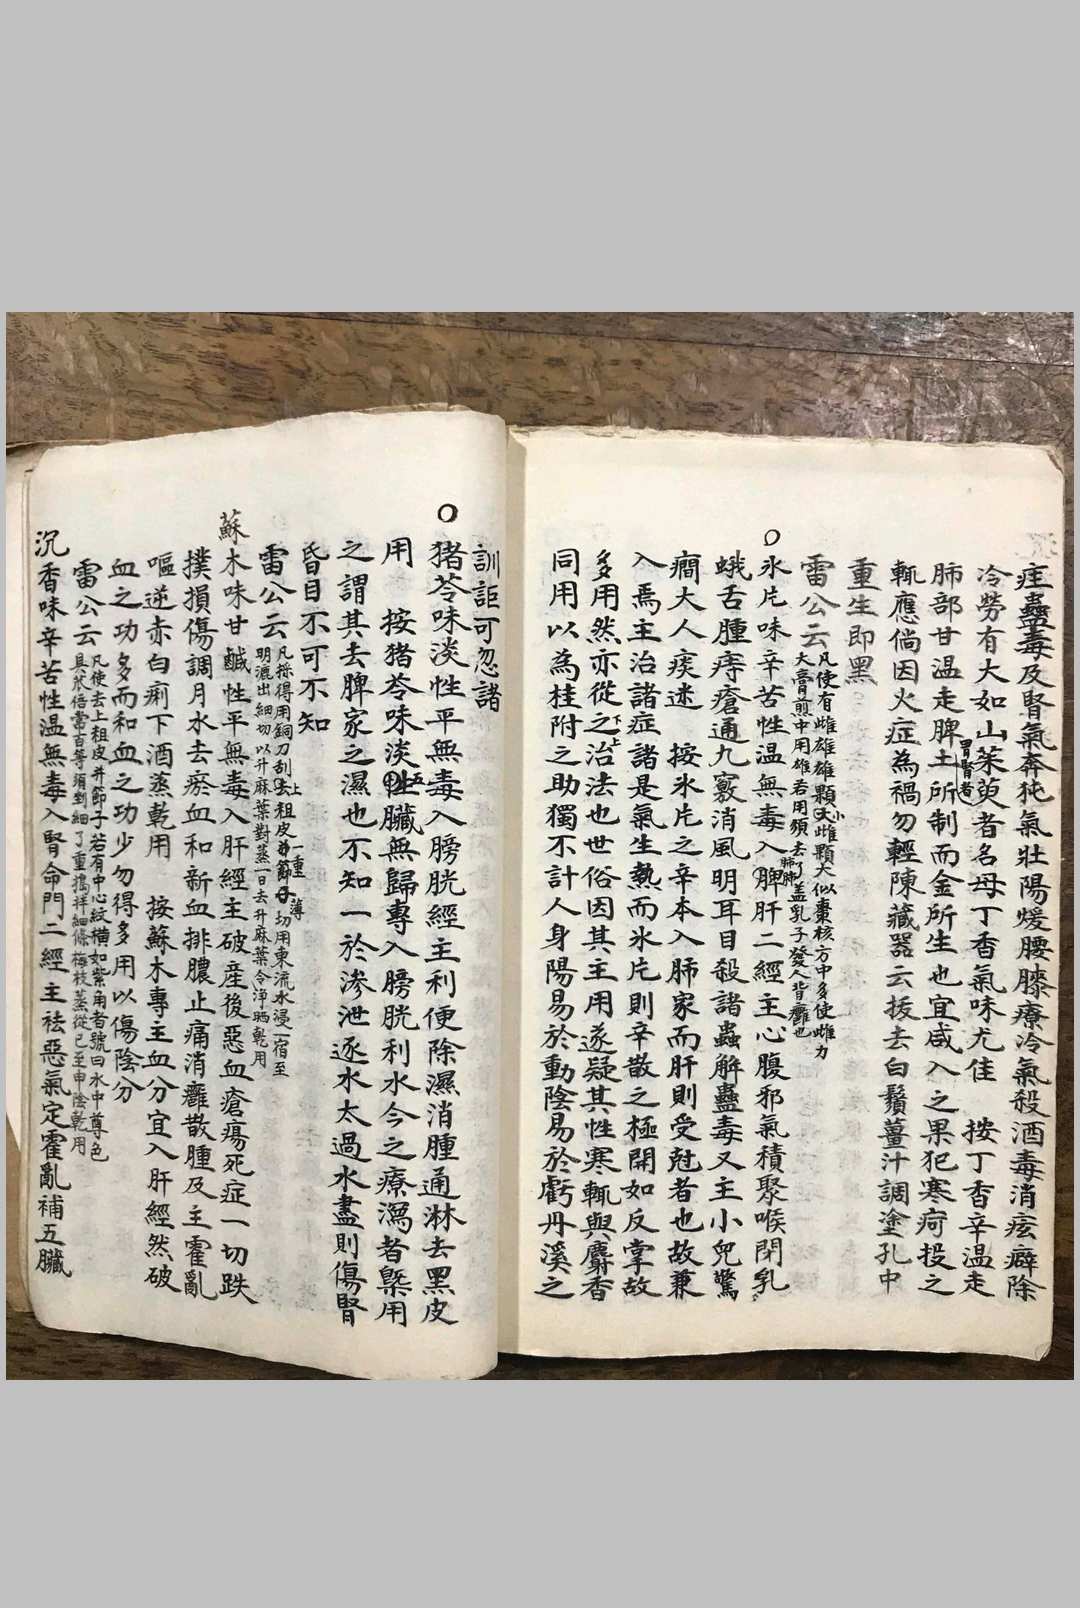 疰蠱毒及腎氣奔㹠氣壯陽煖腰膝療冷氣殺酒毒消痃癖除
冷勞有大如山茱萸者名母丁香氣味尤佳　按丁香辛温走
肺部甘温走脾胃腎者土所制而金所生也宜咸入之果犯寒疴投之
輒應倘因火症為禍勿輕陳藏器云拔去白鬚薑汁調塗孔中
重生即黑
雷公云
凡使有雌雄雄顆小大雌顆大似棗核方中多使雌力
大膏煎中用雄若用須去丁蓋乳子發人背癰也
○氷片味辛苦性温無毒入肺脾肝二經主心腹邪氣積聚喉閉乳
蛾舌腫痔瘡通九竅消風明耳目殺諸蟲解蠱毒又主小兒驚
癇大人痰迷　按氷片之辛本入肺家而肝則受尅者也故兼
入焉主治諸症諸是氣生熱而氷片則辛散之極開如反掌故
多用然亦從之下上治法也世俗因其主用遂疑其性寒輒與麝香
同用以為桂附之助獨不計人身陽易於動陰易於虧丹溪之
訓詎可忽諸
○猪苓味淡性平無毒入膀胱經主利便除濕消腫通淋去黑皮
用　按猪苓味淡性五臟無歸專入膀胱利水今之療瀉者槩用
之謂其去脾家之濕也不知一於渗泄逐水太過水盡則傷腎
昏目不可不知
雷公云
凡採得用銅刀刮去上粗皮一重薄切用東流水浸一宿至
明漉出細切以升麻葉對蒸一日去升麻葉令淨晒乾用
蘇木味甘鹹性平無毒入肝經主破産後惡血瘡瘍死症一切跌
撲損傷調月水去瘀血和新血排膿止痛消癰散腫及主霍亂
嘔逆赤白痢下酒蒸乾用　按蘇木專主血分宜入肝經然破
血之功多而和血之功少勿得多用以傷陰分
雷公云
凡使去上粗皮并節子若有中心紋横如紫角者號曰木中尊色
具效倍常百等須剉細了重搗拌細條梅枝蒸從巳至申陰乾用
沉香味辛苦性温無毒入腎命門二經主祛惡氣定霍亂補五臟